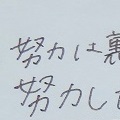 努力は裏
努力し